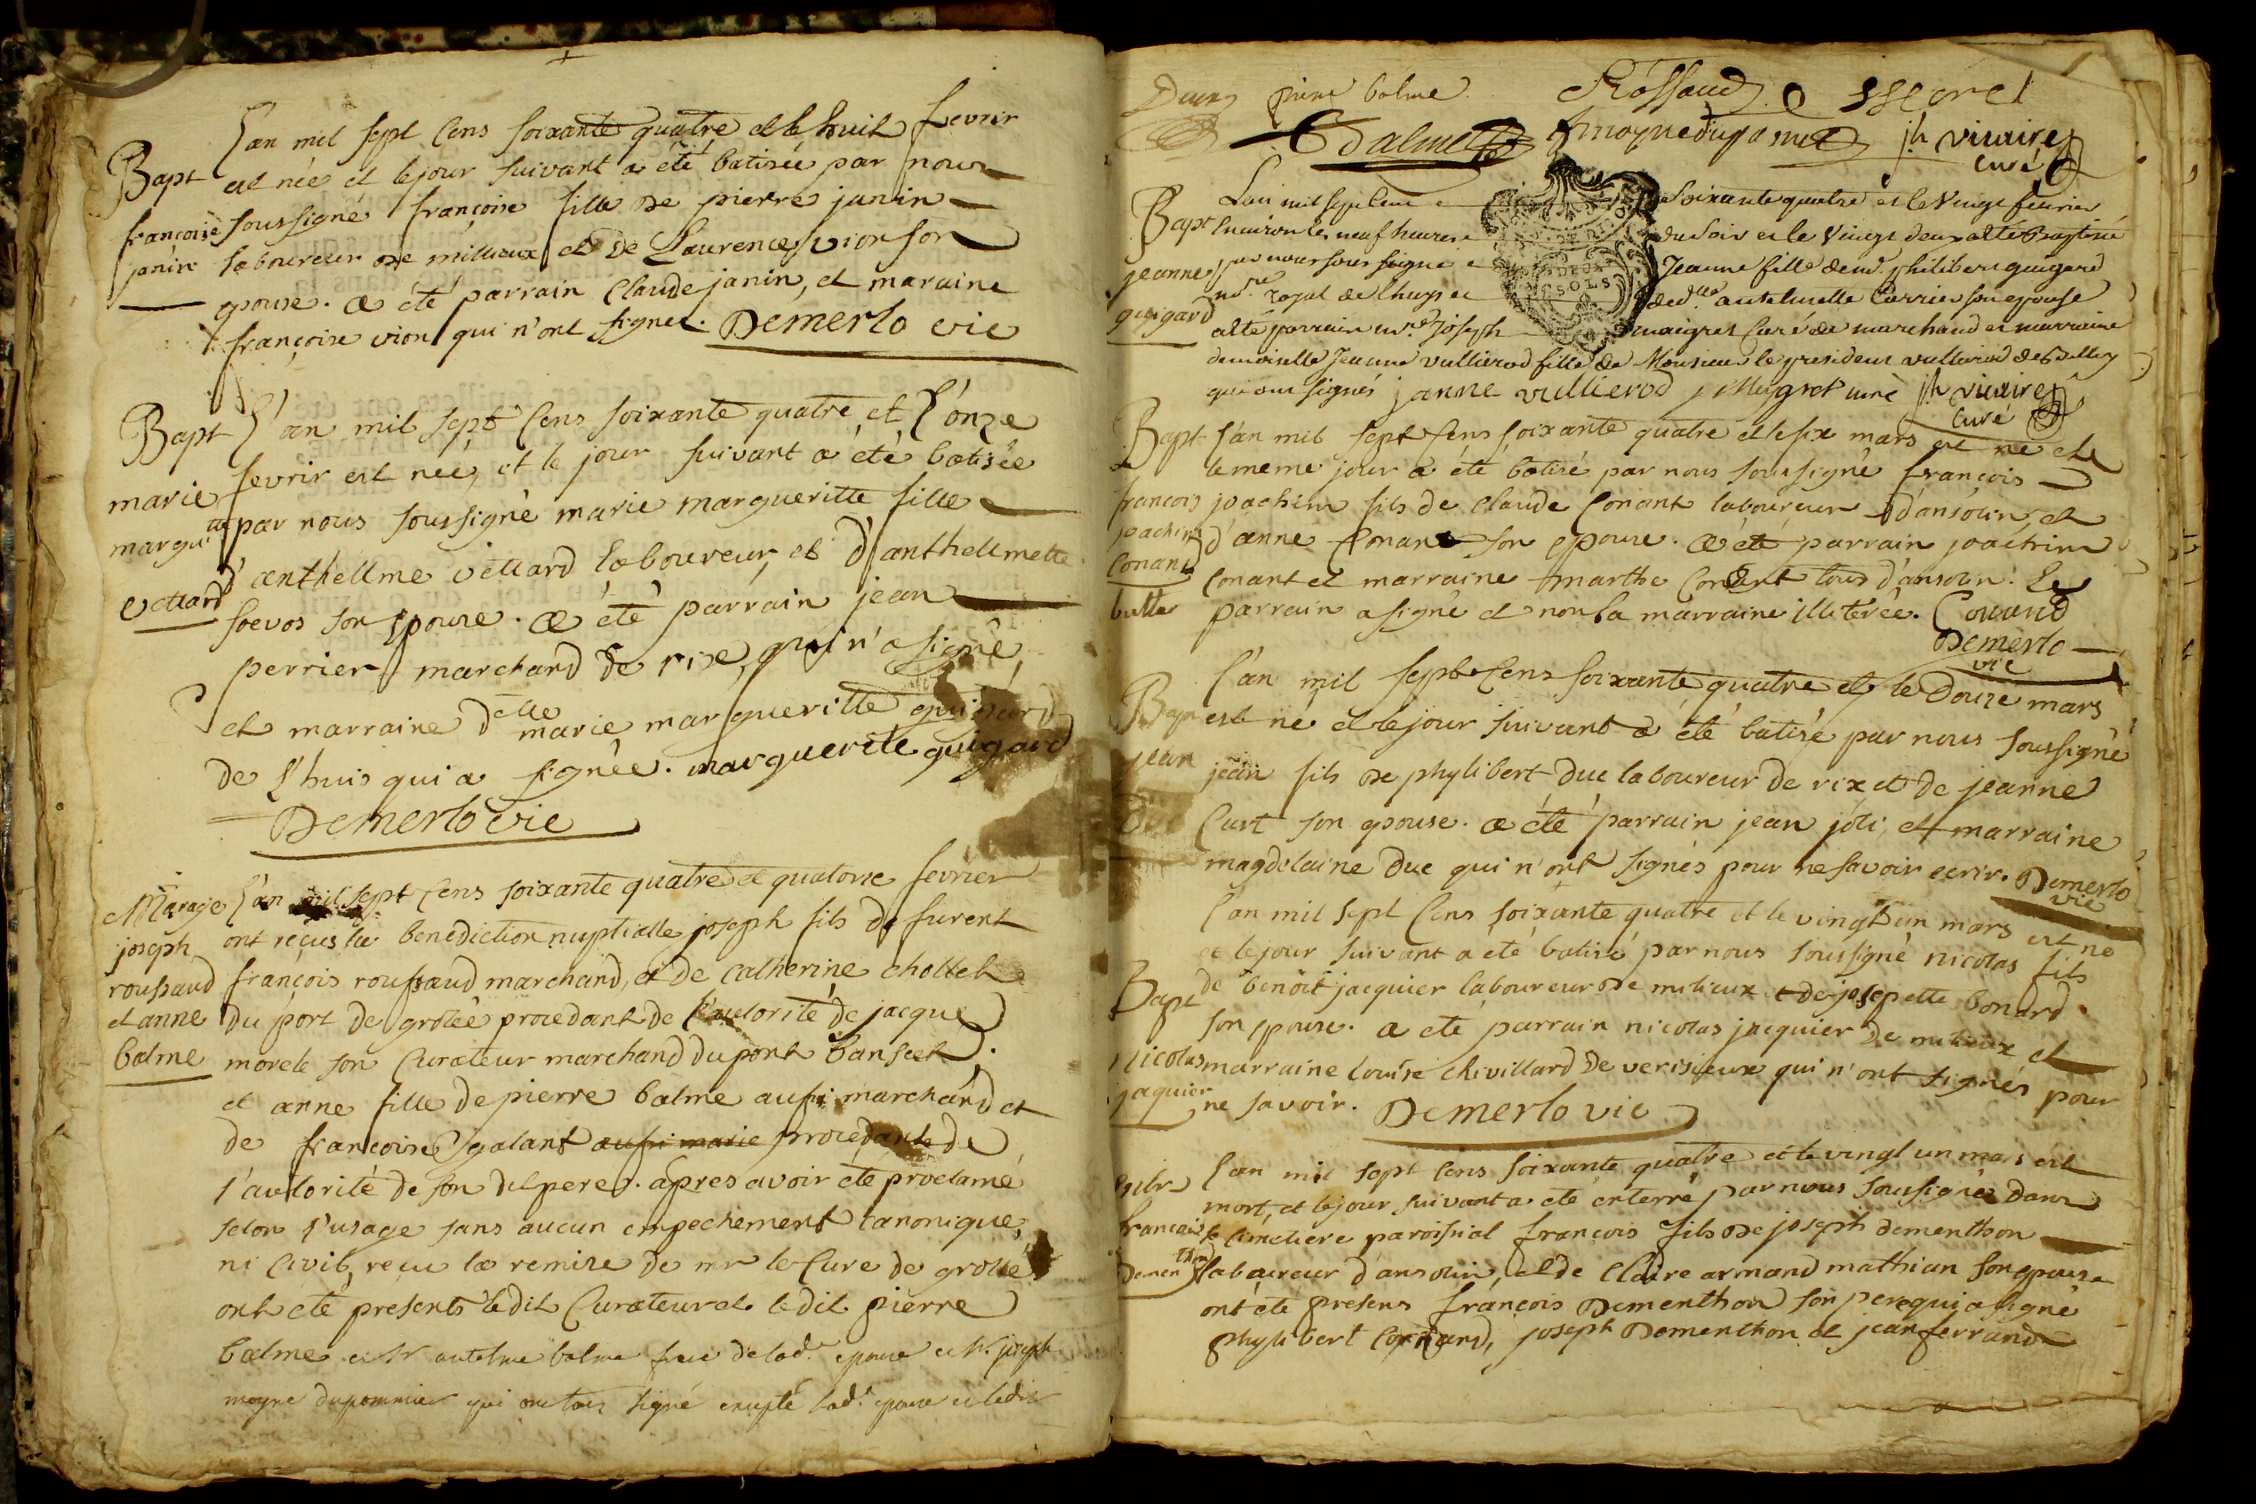 L'an mil sept cens soixante quatre et le huit fevrir
Bapt est née et le jour suivant a été batisée par nous
françoise soussigné françoise fille de pierre janin
janin laboureur de millieux et de Laurence vion son
epouse. a été parrain Claude janin, et maraine
françoise vion qui n'ont signer. Demerlo vic
Bapt L'an mil sept cens soixante quatre, et l'onze
fevrir est neé, et le jour suivant a été batisée
marie
margu.tte par nous soussigné marie margueritte fille
d'anthellme vettard laboureur, et d'anthellmette
vettard
soevos son epouse. a été parrain jean
perrier marchand de rix, qui n'a signé,
et marraine d.elle marie margueritte guigard
de l'huis qui a signée. marguerite guigard
Demerlo vic
Mariage L'an mil sept cens soixante quatre et quatorse fevrier
joseph ont reçus la benediction nuptialle joseph fils de furent
roussaud françois roussaud marchand, et de catherine chollet
et anne du port de grolée procedant de l'autorité de jacque
balme morele son Curateur marchand du pont banset.
et anne fille de pierre balme aussi marchand et
de françoise galant aussi marie procedante de
l'autorité de son dit pere. apres avoir été proclamé
selon l'usage sans aucun empechement canonique,
ni civil, reçu la remise de mr le Cure de grolée
ont été presents ledit Curateur et ledit pierre
balme et Sr antelme balme frere de lad.e epouse et Sr joseph
moyne dupommier qui ont tous signé excepté lad.e epouse et ledit
pierre balme. Rossaud
Balmet f moyne dupomie jh vivuire
curé
Bapt L'an mil sept cent soixante quatre et le vingt fevrier
environ les neuf heures du soir et le vingt deux a été Baptisée
jeanne par nous soussigne Jeanne fille de md. philibert guigard
nd.re royal de lhuys et de d.lle antelmette Perrier son epouse
guigard
a été parrain mre Joseph maigret Curé de marchand et marraine
demoiselle Jeanne vullierod fille de Monsieur le president vullierod de Belley
qui ont signés janne vullierod j Megret curé jh vivuire
curé
Bapt L'an mil sept cens soixante quatre et le six mars est né et
le meme jour a été batisé par nous soussigné françois
francois joachim fils de Claude Conant laboureur d'ansolin, et
joachim d'anne Conant son epouse. a été parrain joachim
Conant Conant et marraine marthe Conant tous d'ansolin. Le
parrain a signé et non la marraine illiterée. Conand
Demerlo
vic
L'an mil sept cens soixante quatre et le douze mars
Bapt est né et le jour suivant a été batisé par nous soussigné
jean jean fils de phylibert duc laboureur de rix et de jeanne
Duc Curt son epouse. a été parrain jean joli, et marraine
magdelaine duc qui n'ont signés pour ne savoir ecrir. Demerlo
vic
L'an mil sept cens soixante quatre et le vingt un mars est né
et le jour suivant a été batisé par nous soussigné nicolas fils
Bapt de benoit jacquier laboureur de milieux et de josepette bonard
son epouse. a été parrain nicolas jacquier de milieux et
nicolas marraine louise chivillard de verisieux qui n'ont signés pour
jaquier ne savoir. Demerlo vic
L'an mil sept cens soixante quatre et le vingt un mars est
mort, et le jour suivant a été enterré par nous soussigné dans
francois le cimetiere paroissial francois fils de joseph dementhon
Dementhon laboureur d'ansolin, et de Claire armand mathian son epouse
ont été presens françois Dementhon son pere qui a signé
phylibert Connand, joseph Dementhon et jean ferrand